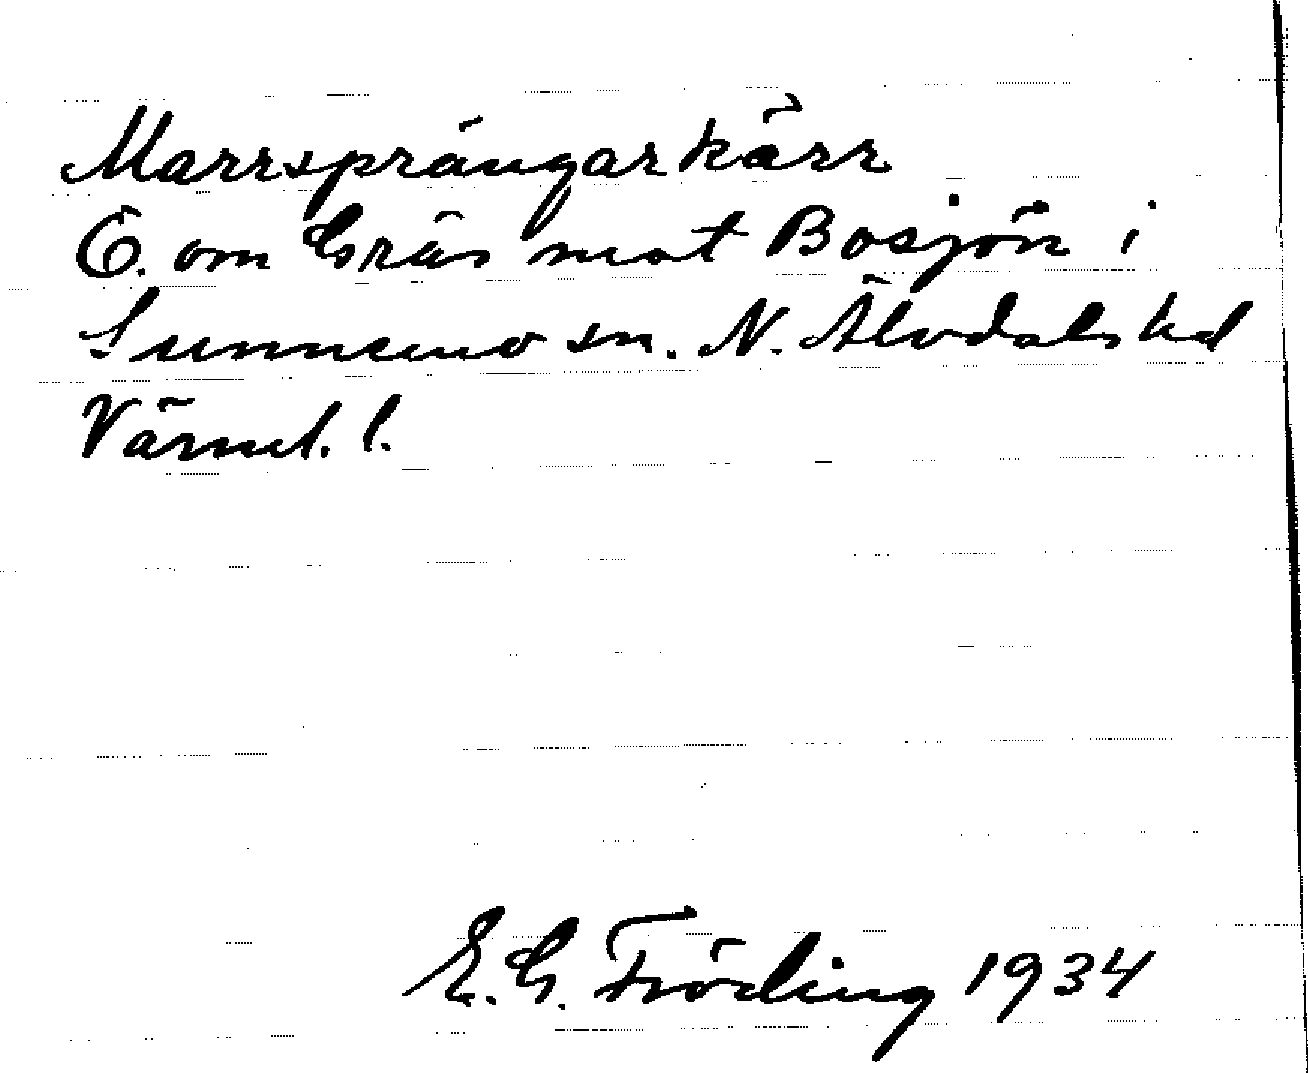 Marrsprängarkärr
Ö. om Gräs mot Bosjön i
Sunnemo sn. N. Älvdals hd
Värml. l.
E. G. Fröding 1934